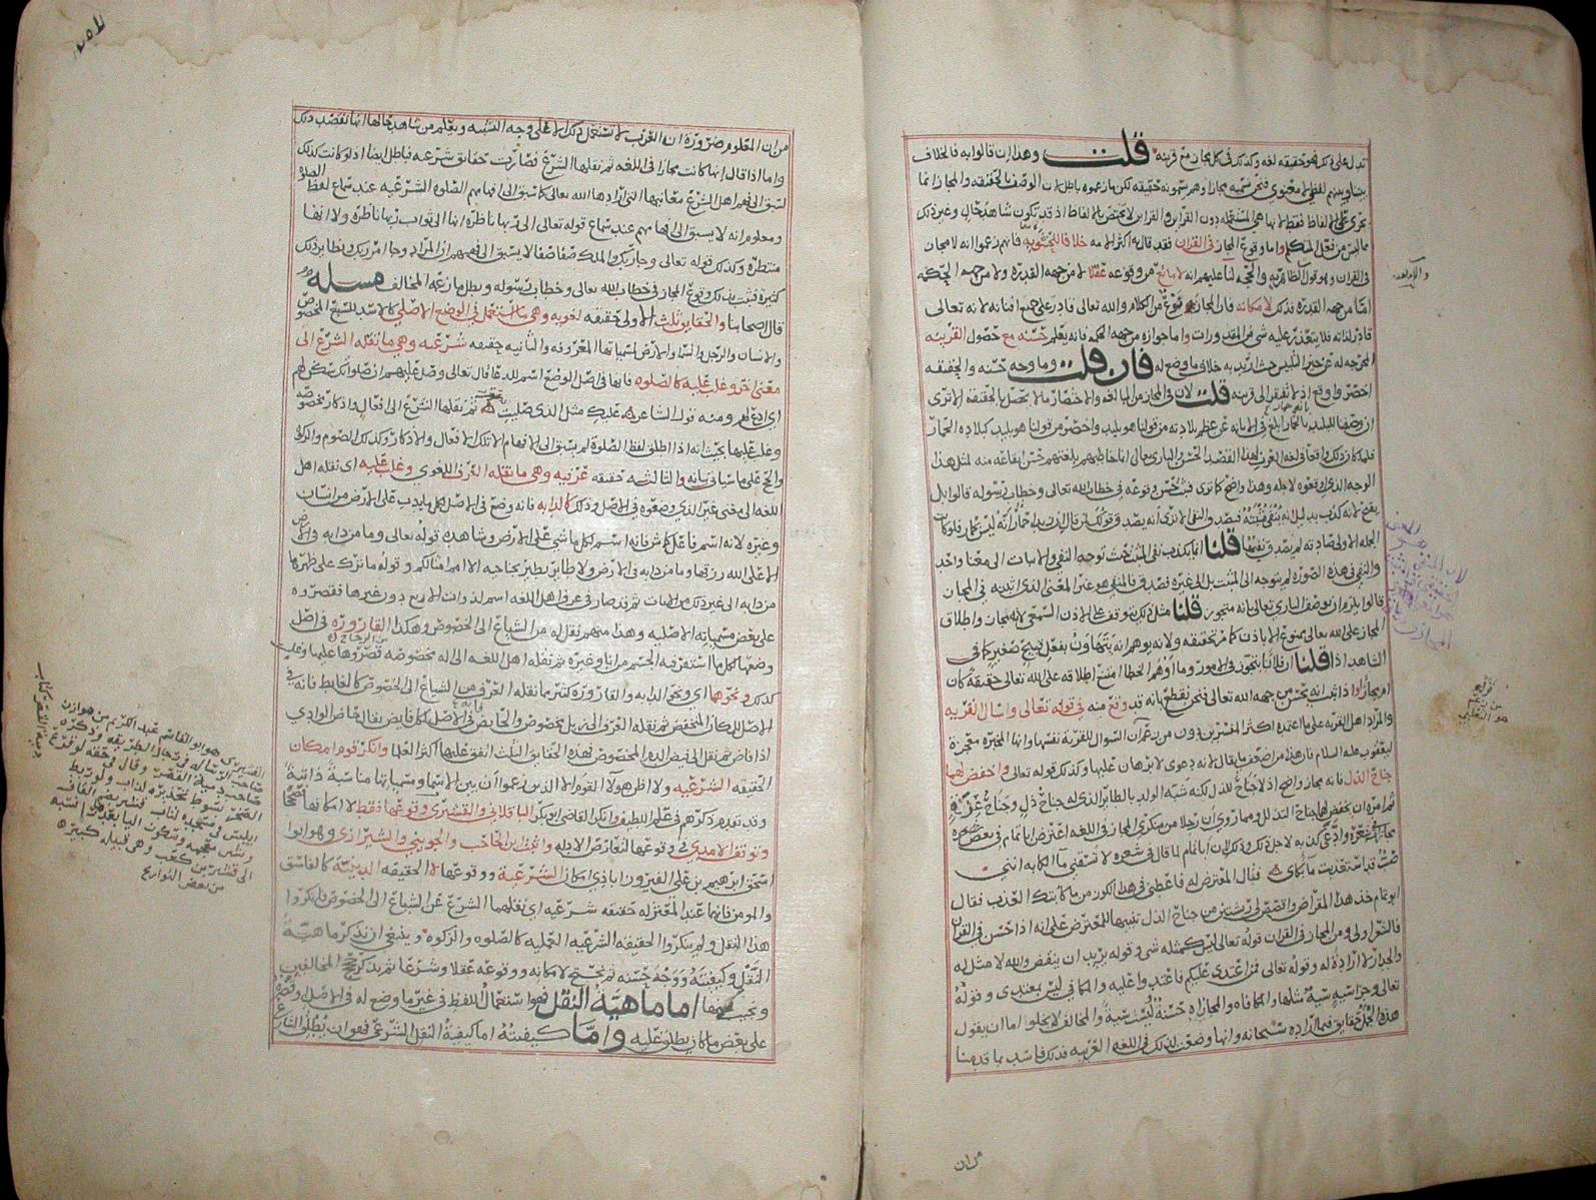 تدل على ذلك فهو حقيقه لغه وكذلك في كل مجاز مع قرينه قلت وهذا ان قالوا به فالخلاف
بيننا وبينهم لفظي لا معنوي فنحن نسميه مجازا وهم يسمونه حقيقه لكن ما زعموه باطل لان الوصف بالحقيقه والمجاز انما
يجري على الالفاظ فقط لانها هي المستعمله دون القراين والقراين لا تختص بالالفاظ اذ قد تكون شاهد حال وغير ذلك
مما ليس من فعل المتكلم واما وقوع المجاز في القران فقد قال به اكثر الامه خلافا للحشويه فانهم زعموا انه لا مجاز
في القران وهو قول الظاهريه والحجه لنا عليهم انه لا مانع من وقوعه عقلا لا من جهه القدره ولا من جهه الحكمه
اما من جهه القدره فذلك لامكانه فان المجاز نوع من الكلام والله تعالى قادر على جميع افنانه لانه تعالى
قادر لذاته فلا يتعذر عليه شي من المقدورات واما جوازه من جهه الحكمه فانه يعلم حسنه مع حصول القرينه
المخرجه له عن حيز التلبيس حيث اريد به خلاف ما وضع له فان قلت وما وجه حسنه والحقيقه
اخصر واوقع اذ لا تفتقر الى قرينه قلت لان في المجاز من المبالغه والاختصار ما لا يحصل بالحقيقه الا ترى
ان وصفنا للبليد بانه حمار ابلغ في الابانه عن عظم بلادته من قولنا هو بليد واخصر من قولنا هو بليد كبلاده الحمار
فلما كان ذلك واقعا في لغه العرب لهذا القصد الحسن والباري تعالى انما خاطبهم بلغتهم حسن ايقاعه منه لمثل هذا
الوجه الذي اوقعوه لاجله وهذا واضح كما ترى فثبت حسن وقوعه في خطاب الله تعالى وخطاب رسوله قالوا بل
يقبح لانه كذب بدليل انه ينفى فيصدق والنفي الا ترى انه يصدق قولك لمن قال لزيد بليد حمار انه ليس بحمار فلو كانت
الجمله الاولى صادقه لم يصدق نفيها قلنا انما يكذب نفي المثبت حيث توجه النفي والاثبات الى معنى واحد
والنفي في هذه الصوره لم يتوجه الى المثبت بل الى غيره فصدق فالمنفي هو غير المعنى الذي اثبته في المجاز
قالوا يلزم ان يوصف الباري تعالى بانه متجوز قلنا مثل ذلك يتوقف على الاذن السمعي لانه مجاز واطلاق
المجاز على الله تعالى ممنوع الا باذن كما تحقيقه ولانه يوهم انه يتهاون بفعل قبيح صغير كما في
الشاهد اذا قلنا ان فلانا يتجوز في الامور وما اوهم الخطا امتنع اطلاقه على الله تعالى حقيقه كان
ام مجازا واذا ثبت انه يحسن من جهه الله تعالى فنحن نقطع بانه قد وقع منه في قوله تعالى واسال القريه
والمراد اهل القريه على ما اعتمده اكثر المفسرين دون من زعم ان السوال للقريه نفسها وانها المخبره معجزة
ليعقوب عليه السلام فان هذا من اضعف ما يقال لانه دعوى لا برهان عليها وكذلك قوله تعالى واخفض لهما
جناح الذل فانه مجاز واضح اذ لا جناح للذل لكنه شبه الولد بالطاير الذي له جناح ذل وجناح عز
ثم امره ان يخفض لهما جناح التذلل ومما روي ان رجلا من منكري المجاز في اللغه اعترض ابا تمام في بعض شعره
مجازا في شعره وادعى كذبه لاجل ذلك وذلك لان ابا تمام لما قال في شعره لا تسقني ماء الملام فانني
صب قد استعذبت ماء بكائي قال المعترض له فاعطني في هذا الكوز من ماء بكائك العذب فقال
ابو تمام خذ هذا المقراض واقصص لي ريشتين من جناح الذل تنبيها للمعترض على انه اذا حسن في القران
فالشعر اولى ومن المجاز في القران قوله تعالى ليس كمثله شي وقوله يريد ان ينقض والله لا مثل له
والجدار لا ارادة له وقوله تعالى فمن اعتدى عليكم فاعتدوا عليه والمكافي ليس بمعتدي وقوله
تعالى وجزا سيئه سيئة مثلها والمكافاه والمجازاه حسنة ليست سيئة والمخالف لا يخلوا اما ان يقول
هذا الجمل حقايق فيما اراده سبحانه وانها وضعت لذلك في اللغه العربيه فذلك فاسد بما قدمنا
من ان
من ان المعلوم ضرورة ان العرب لا تستعمل ذلك الا على وجه التشبيه ويعلم من شاهد حالها انها تقصد ذلك
واما اذا قال انها كانت مجازا في اللغه ثم نقلها الشرع فصارت حقايق شرعيه فباطل ايضا اذ لو كانت كذلك
لسبق الى فهم اهل الشرع معانيها التي ارادها الله تعالى كما سبق الى افهامهم الصلوه الشرعيه عند سماع لفظ الصلوه
ومعلوم انه لا يسبق الى افهامهم عند سماع قوله تعالى الى ربها ناظره انها الى ثواب ربها ناظره ولا انها
منتظره وكذلك قوله تعالى وجا ربك والملك صفا صفا لا يسبق الى فهمهم ان المراد وجا امر ربك ونظاير ذلك
كثيرة فثبت بذلك وقوع المجاز في خطاب الله تعالى وخطاب رسوله وبطل ما زعمه المخالف مسله
قال اصحابنا والحقايق ثلث الاولى حقيقه لغويه وهي ما استعمل في الوضع الاصلي كالاسد للسبع المخصوص
والانسان والرجل والسما والارض لمسمياتها المعروفه والثانيه حقيقه شرعيه وهي ما نقله الشرع الى
معنى اخر وغلب عليه كالصلوه فانها في اصل الوضع اسم للدعا قال تعالى وصل عليهم ان صلواتك سكن لهم
اي ادع لهم ومنه قول الشاعر عليك مثل الذي صليت ثم نقلها الشرع الى افعال واذكار مخصوصه
وغلب عليها بحيث انه اذا اطلق لفظ الصلوة لم يسبق الى الافهام الا تلك الافعال والاذكار وكذلك الصوم والزكوه
والحج على ما سياتي بيانه والثالثه حقيقه عرفيه وهي ما نقله العرف اللغوي وغلب عليه اي نقله اهل
اللغه الى معنى غير الذي وضعوه في الاصل وذلك كالدابه فانه وضع في الاصل لكل ما يدب على الارض من انسان
وغيره لانه اسم فاعل كماش فانه اسم لكل ماشي على الارض وشاهده قوله تعالى وما من دابه في الارض
الا على الله رزقها وما من دابه في الارض ولا طاير يطير بجناحيه الا امم امثالكم وقوله ما ترك على ظهرها
من دابه الى غير ذلك من الايات ثم قد صار في عرف اهل اللغه اسم لذوات الاربع دون غيرها فقصروه
على بعض مسمياته الاصليه وهذا منهم نقل له من الشياع الى الخصوص وهكذا القاروره في اصل
وضعها لكل ما استقر فيه الجسم من انا وغيره ثم نقله اهل اللغه الى اله مخصوصه من الزجاج قصروها عليها وغلب
كذلك ونحوهما اي ونحو الدابه والقاروره كثير مما نقله العرف من الشياع الى الخصوص كالغايط فانه في
الاصل للمكان المنخفض ثم نقله العرف الى مخصوص والحايض في الاصل لكل فايض يقال حاض الوادي
اذا فاض ثم نقل الى فيض الدم المخصوص فهذه الحقايق الثلث اتفق عليها اكثر العلما وانكر قوم امكان
الحقيقه الشرعيه ولا اظن هولا القوم الا الذين زعموا ان بين الاسما ومسمياتها مناسبة ذاتية
وقد تقدم ذكرهم في علم اللطيف وانكر القاضي ابو بكر الباقلاني والقشيري وقوعها فقط لا امكانها فصححا
وتوقف الامدي في وقوعها لتعارض الادله واثبت ابن الحاجب والجويني والشيرازي وهو ابو
اسحق ابرهيم بن علي الفيروزاباذي امكان الشرعية ووقوعها لا الحقيقه الدينية كالفاسق
والمومن فانها عند المعتزله حقيقه شرعيه اي نقلهما الشرع عن الشياع الى الخصوص فانكروا
هذا النقل ولم ينكروا الحقيقه الشرعيه الجليه كالصلوه والزكوه وينبغي ان نذكر ماهية
النقل وكيفيته ووجه حسنه ثم نحتج لامكانه ووقوعه عقلا وشرعا ثم نذكر حجج المخالفين
ونجيب عنها اما ماهية النقل فهو استعمال اللفظ في غير ما وضع له في الاصل وقصره
على بعض ما كان يطلق عليه واما كيفيته اما كيفية النقل الشرعي فهو ان يطلق الشارع
القشيري هو ابو القاسم عبد الكريم بن هوازن
صاحب الرساله في رجال الطريقه وذكره
صاحب دمية القصر وقال في حقه لو قرع
الصخر بسوط تحذيره لذاب ولو ربط
ابليس في مجلسه لتاب